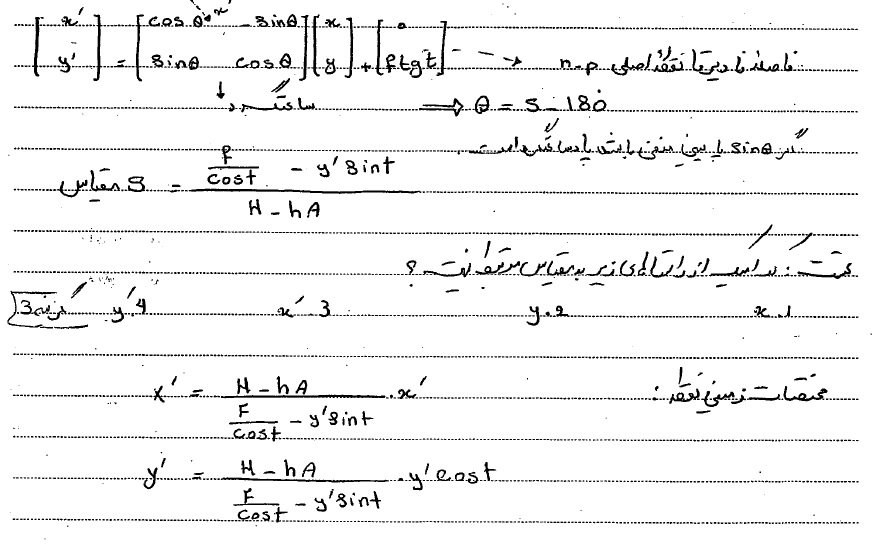 [x' y'] = [cos θ - sin θ sin θ cos θ] [x y] + [0 f tg t] → فاصله نادیر تا نقطه اصلی n-p
ساعتگرد ⇒ θ = S - 180
اگر sin θ پایینی منفی باشد پادساعتگرد است.
مقیاس S = (f/cos t - y' sin t) / (H - hA)
تست: کدام یک از پارامترهای زیر به مقیاس مرتبط نیست؟
1. x 2. y 3 x' 4. y' گزینه 3
مختصات زمینی نقطه: X' = (H - hA) / (F/cos t - y' sin t) . x'
Y' = (H - hA) / (F/cos t - y' sin t) . y' cos t